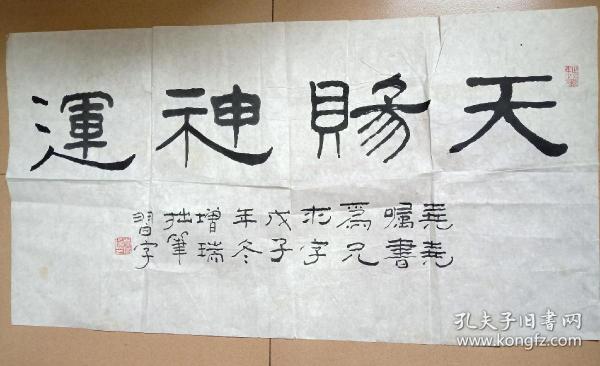 天賜神運
堯堯
囑書
為兄
求字
戊子
年冬
增瑞
拙筆
習字
孔夫子旧书网
www.kongfz.com